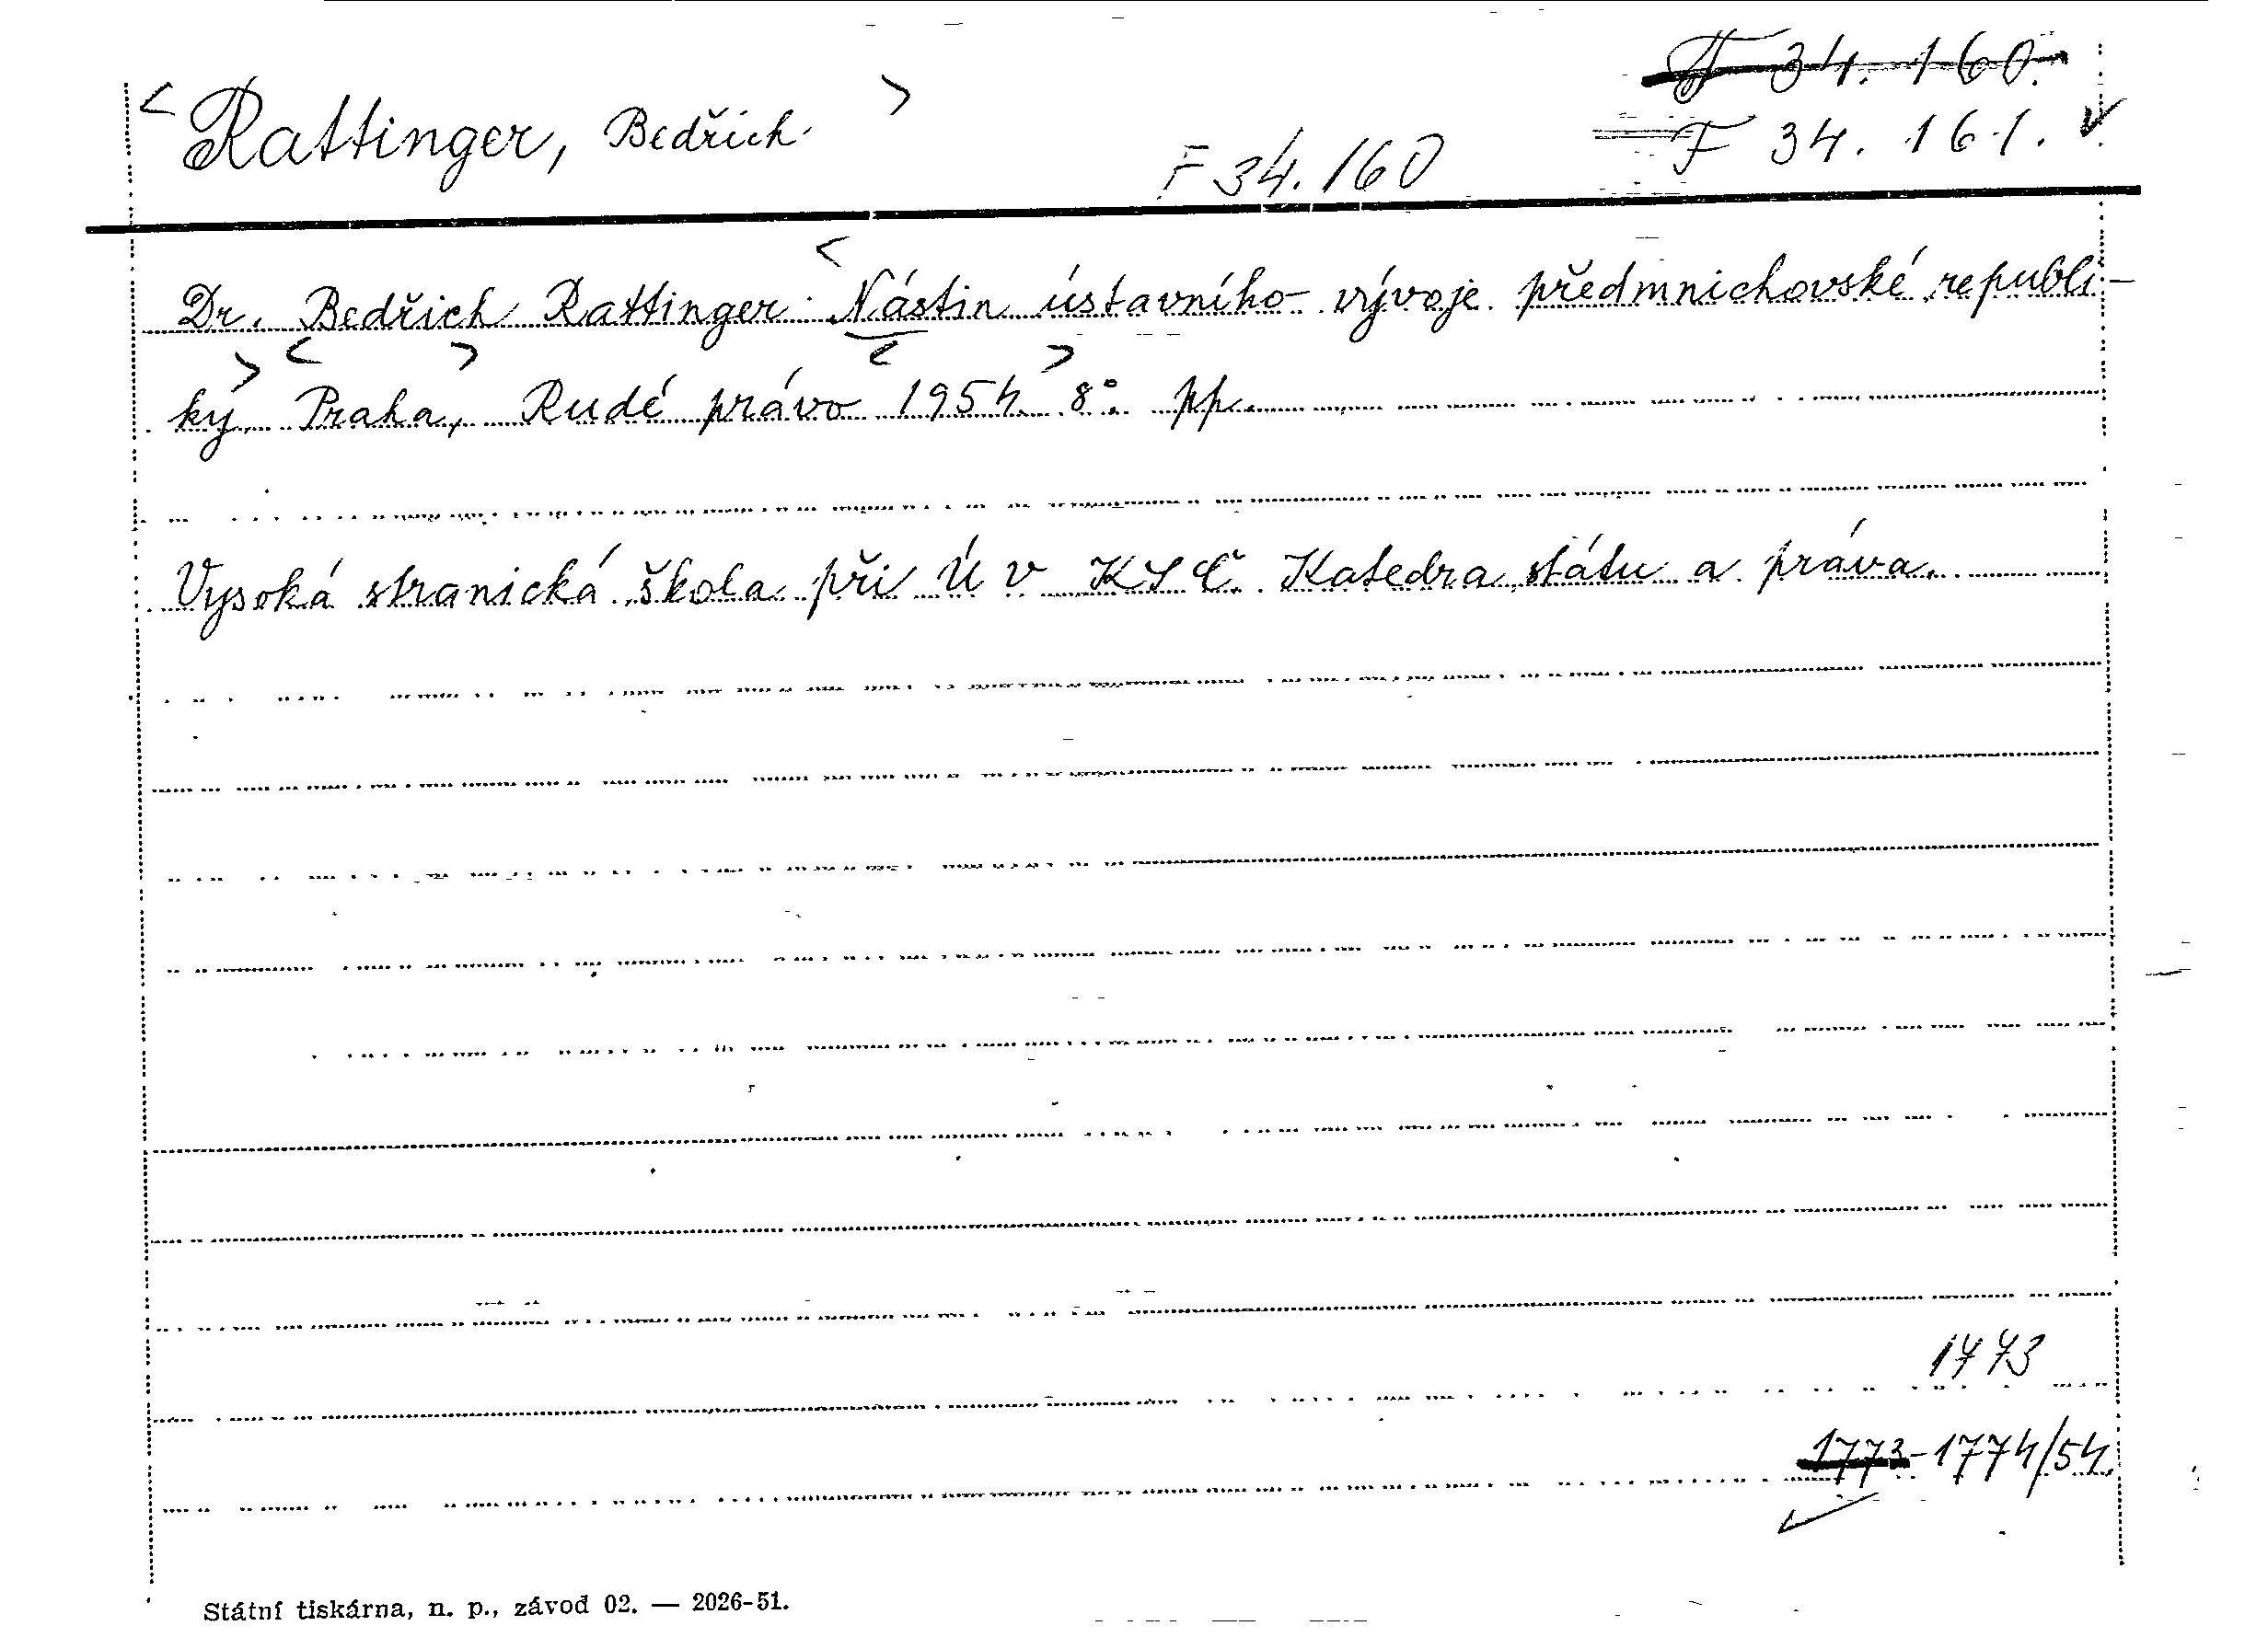 F 34.160.
< Rattinger, Bedřich >
F 34.160
F 34.161.
Dr. Bedřich Rattinger: <Nástin ústavního vývoje předmnichovské republi-
ky.> <Praha,> Rudé právo <1954.> 8° pp.
Vysoká stranická škola při ÚV KSČ. Katedra státu a práva.
1773
1773-1774/54.
Státní tiskárna, n. p., závod 02. — 2026-51.